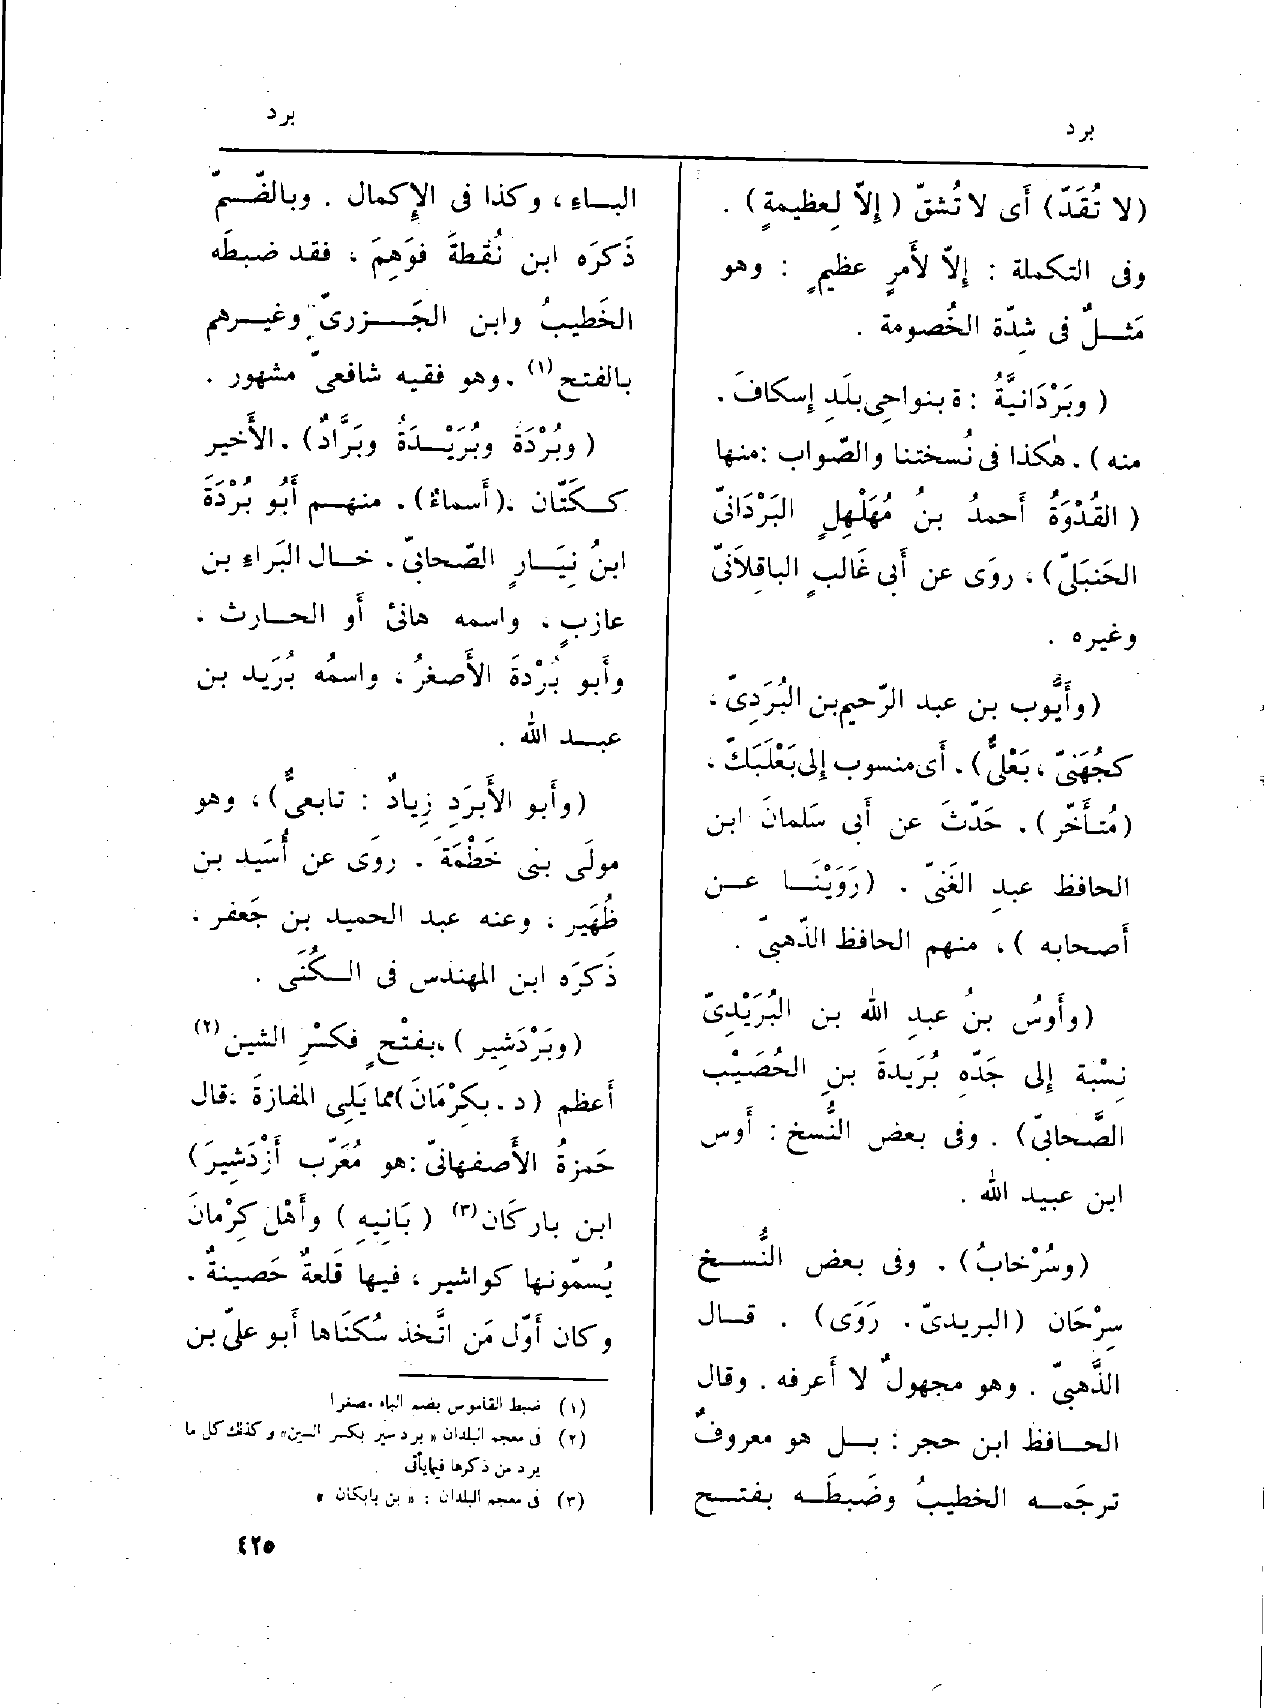 برد
برد
(لا تُقَدّ) أى لا تُشقّ (إلاّ لِعظيمةٍ) .
وفى التكملة : إلاّ لأَمرٍ عظيمٍ : وهو
مَثلٌ فى شِدّة الخُصومة .
(وبَرْدَانيَّةُ : ة بنواحِى بلَدِ إسكافَ .
منه) . هٰكذا فى نُسختنا والصّواب : منها
(القُدْوَةُ أحمدُ بنُ مُهَلْهِلٍ البَرْدَانىّ
الحَنبَلىّ) ، روَى عن أَبى غَالبٍ الباقِلاَّنىّ
وغيره .
(وأَيُّوب بن عبد الرّحيم بن البُرَدِىّ ،
كجُهَنىّ ، بَعْلىٌّ) . أى منسوب إلى بَعْلَبَكّ ،
(مُتأَخّر) . حَدّثَ عن أَبى سَلمانَ ابن
الحافظ عبدِ الغَنىّ . (رَوَيْنَا عن
أصحابه ) ، منهم الحافظ الذّهبىّ .
(وأَوسُ بنُ عبدِ الله بن البُرَيْدِىّ
نِسْبة إلى جَدّهِ بُرَيدةَ بنِ الحُصَيْب
الصَّحابىّ) . وفى بعض النُّسخ : أَوس
ابن عبيد الله .
(وسُرْخابُ) . وفى بعض النُّسخ
سِرْحَان (البريدىّ . رَوَى) . قال
الذَّهبىّ . وهو مجهولٌ لا أَعرفه . وقال
الحافظ ابن حجر : بل هو معروفٌ
ترجَمه الخطيبُ وضَبطَه بفتح
الباءِ ، وكذا فى الإكمال . وبالضّمّ
ذَكرَه ابن نُقطةَ فوَهِمَ ، فقد ضبطَه
الخَطيبُ وابن الجَزرىّ وغيرهم
بالفتح (١) . وهو فقيه شافعىّ مشهور .
(وبُرْدَةُ وبُرَيْدَةُ وبَرَّادٌ) . الأَخير
ككَتّان . (أَسماءٌ) . منهم أَبُو بُرْدَةَ
ابنُ نِيَارٍ الصّحابىّ . خال البَراءِ بن
عازبٍ ، واسمه هانئ أو الحارث ،
وأَبو بُرْدةَ الأَصغرُ ، واسمُه بُرَيد بن
عبد الله .
(وأَبو الأَبرَدِ زِيادٌ : تابعىٌّ) ، وهو
مولَى بنى خَطْمَةَ . روَى عن أُسَيد بن
ظُهَير ، وعنه عبد الحميد بن جَعفر ،
ذَكرَه ابن المهندس فى الكُنَى .
(وبَرْدَشِير) ، بفتْحٍ فكسْرِ الشين (٢)
أعظم (د . بكِرْمَانَ) مما يَلِى المفازةَ : قال
حَمزةُ الأَصفهانىّ : هو مُعَرّب أَزْدَشِيرَ)
ابن باركَان (٣) ( بَانِيهِ ) وأَهْل كِرْمانَ
يُسمّونها كواشير ، فيها قَلعةٌ حَصينةٌ .
وكان أَوّل مَن اتَّخذ سُكنَاها أَبو علىّ بن
(١) ضبط القاموس بضم الباء مصغرا
(٢) فى معجم البلدان « بردسير بكسر السين» وكذلك كل ما
يرد من ذكرها فيما يأتى
(٣) فى معجم البلدان : « بن بابكان »
٤٢٥